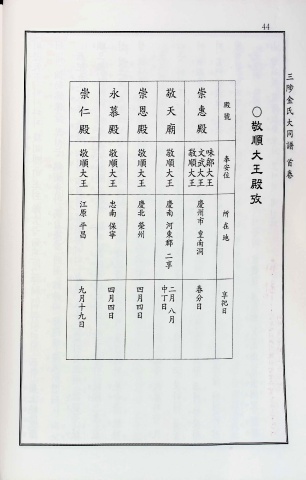 44
三陟金氏大同譜 首卷
○敬順大王殿攷
殿號
奉安位
所在地
享祀日
崇惠殿
味鄒大王
文武大王
敬順大王
慶州市 皇南洞
春分日
敬天廟
敬順大王
慶南 河東郡
二月 八月
中丁日
崇恩殿
敬順大王
慶北 榮州
四月四日
永慕殿
敬順大王
忠南 保寧
四月四日
崇仁殿
敬順大王
江原 平昌
九月十九日